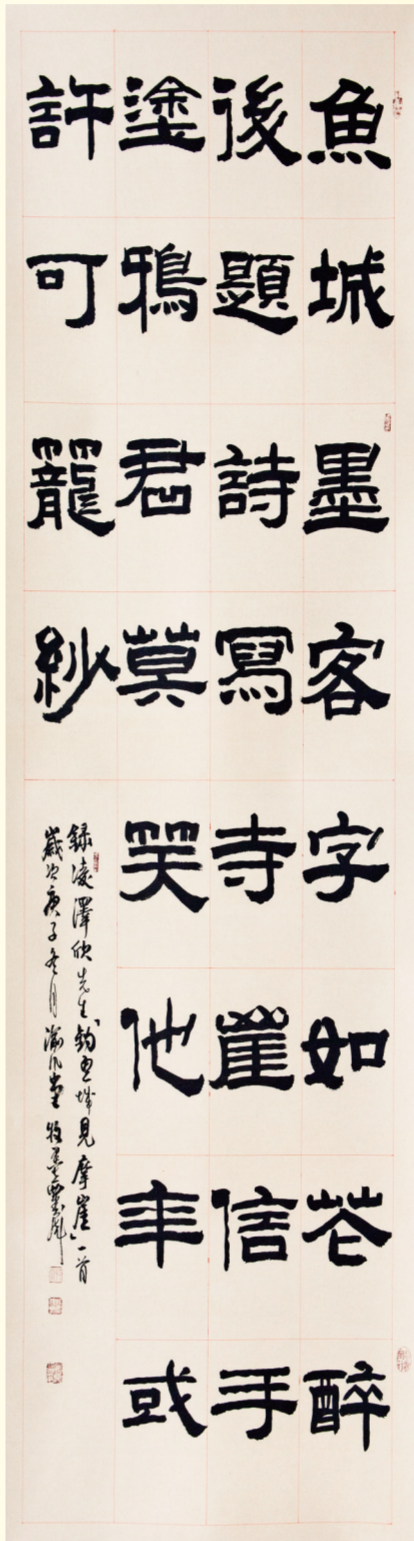 魚城墨客字如花醉
後題詩寫寺崖信手
塗鴉君莫笑他年或
許可籠紗
錄凌澤欣先生釣魚城見摩崖一首
歲次庚子冬月渝州堂牧墨